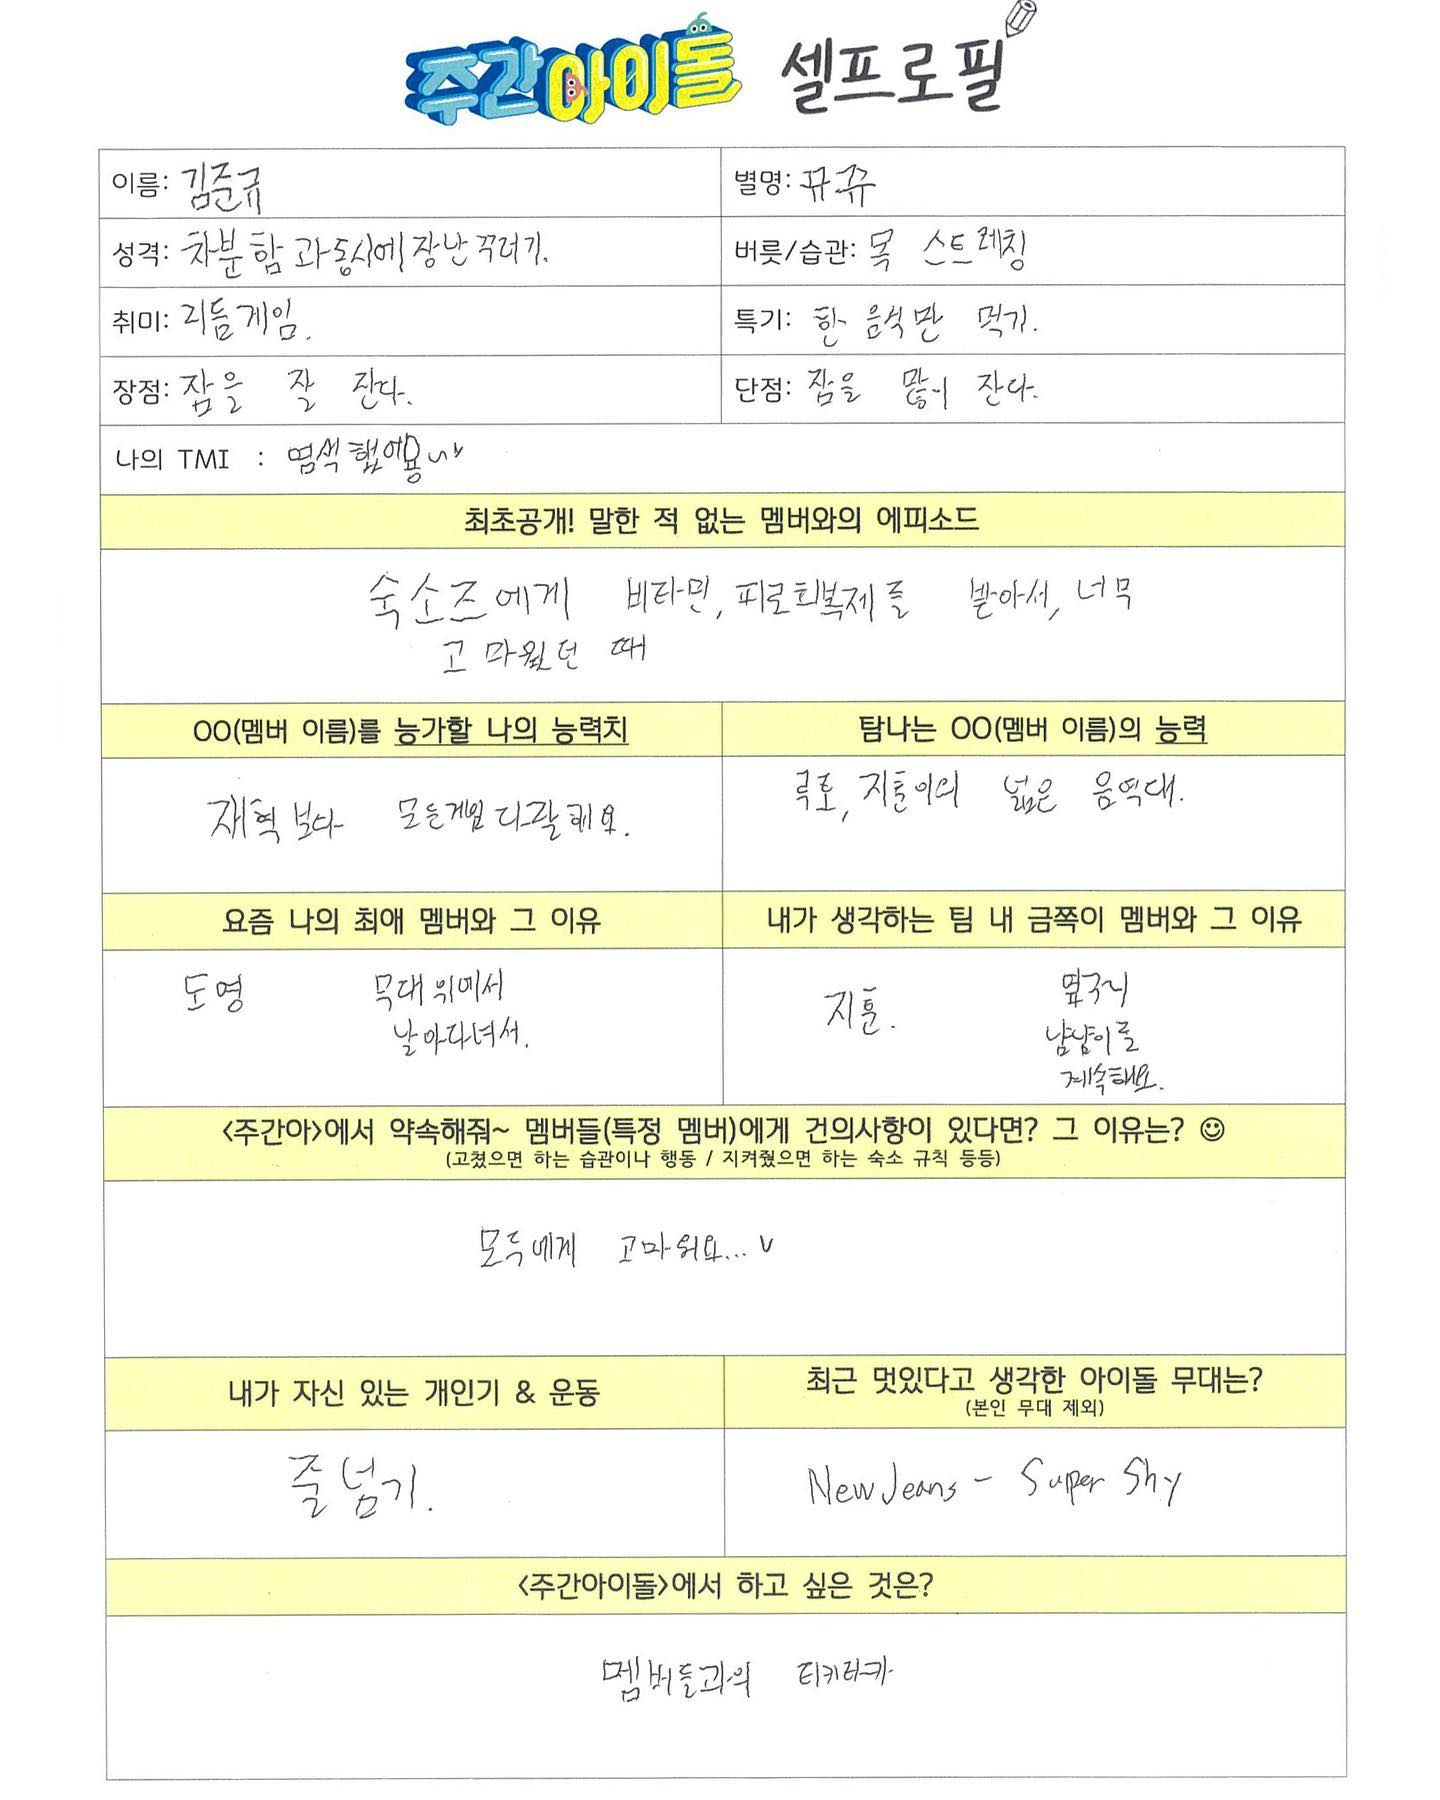 주간아이돌 셀프로필
이름: 김준규
별명: 뀨쮸
성격: 차분함과 동시에 장난꾸러기.
버릇/습관: 목 스트레칭
취미: 리듬게임.
특기: 한 음식만 먹기.
장점: 잠을 잘 잔다.
단점: 잠을 많이 잔다.
나의 TMI : 염색했어용~v
최초공개! 말한 적 없는 멤버와의 에피소드
숙소즈에게 비타민, 피로회복제를 받아서, 너무
고마웠던 때
OO(멤버 이름)를 능가할 나의 능력치
탐나는 OO(멤버 이름)의 능력
재혁보다 모든게임 다 잘해요.
루토, 지훈이의 넓은 음역대.
요즘 나의 최애 멤버와 그 이유
내가 생각하는 팀 내 금쪽이 멤버와 그 이유
도영
무대위에서
날아다녀서.
지훈.
옆구리
냠냠이를
계속해요.
<주간아>에서 약속해줘~ 멤버들(특정 멤버)에게 건의사항이 있다면? 그 이유는? ☺
(고쳤으면 하는 습관이나 행동 / 지켜줬으면 하는 숙소 규칙 등등)
모두에게 고마워요... v
내가 자신 있는 개인기 & 운동
최근 멋있다고 생각한 아이돌 무대는?
(본인 무대 제외)
줄넘기.
NewJeans - Super Shy
<주간아이돌>에서 하고 싶은 것은?
멤버들과의 티키타카